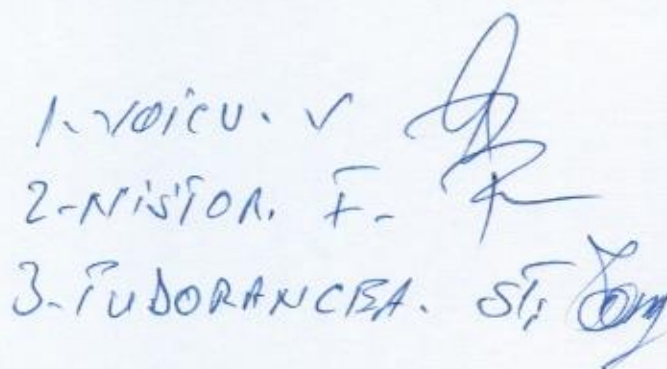 1. VOICU. V
2-NISTOR. F-
3-TUDORANCEA. ST.